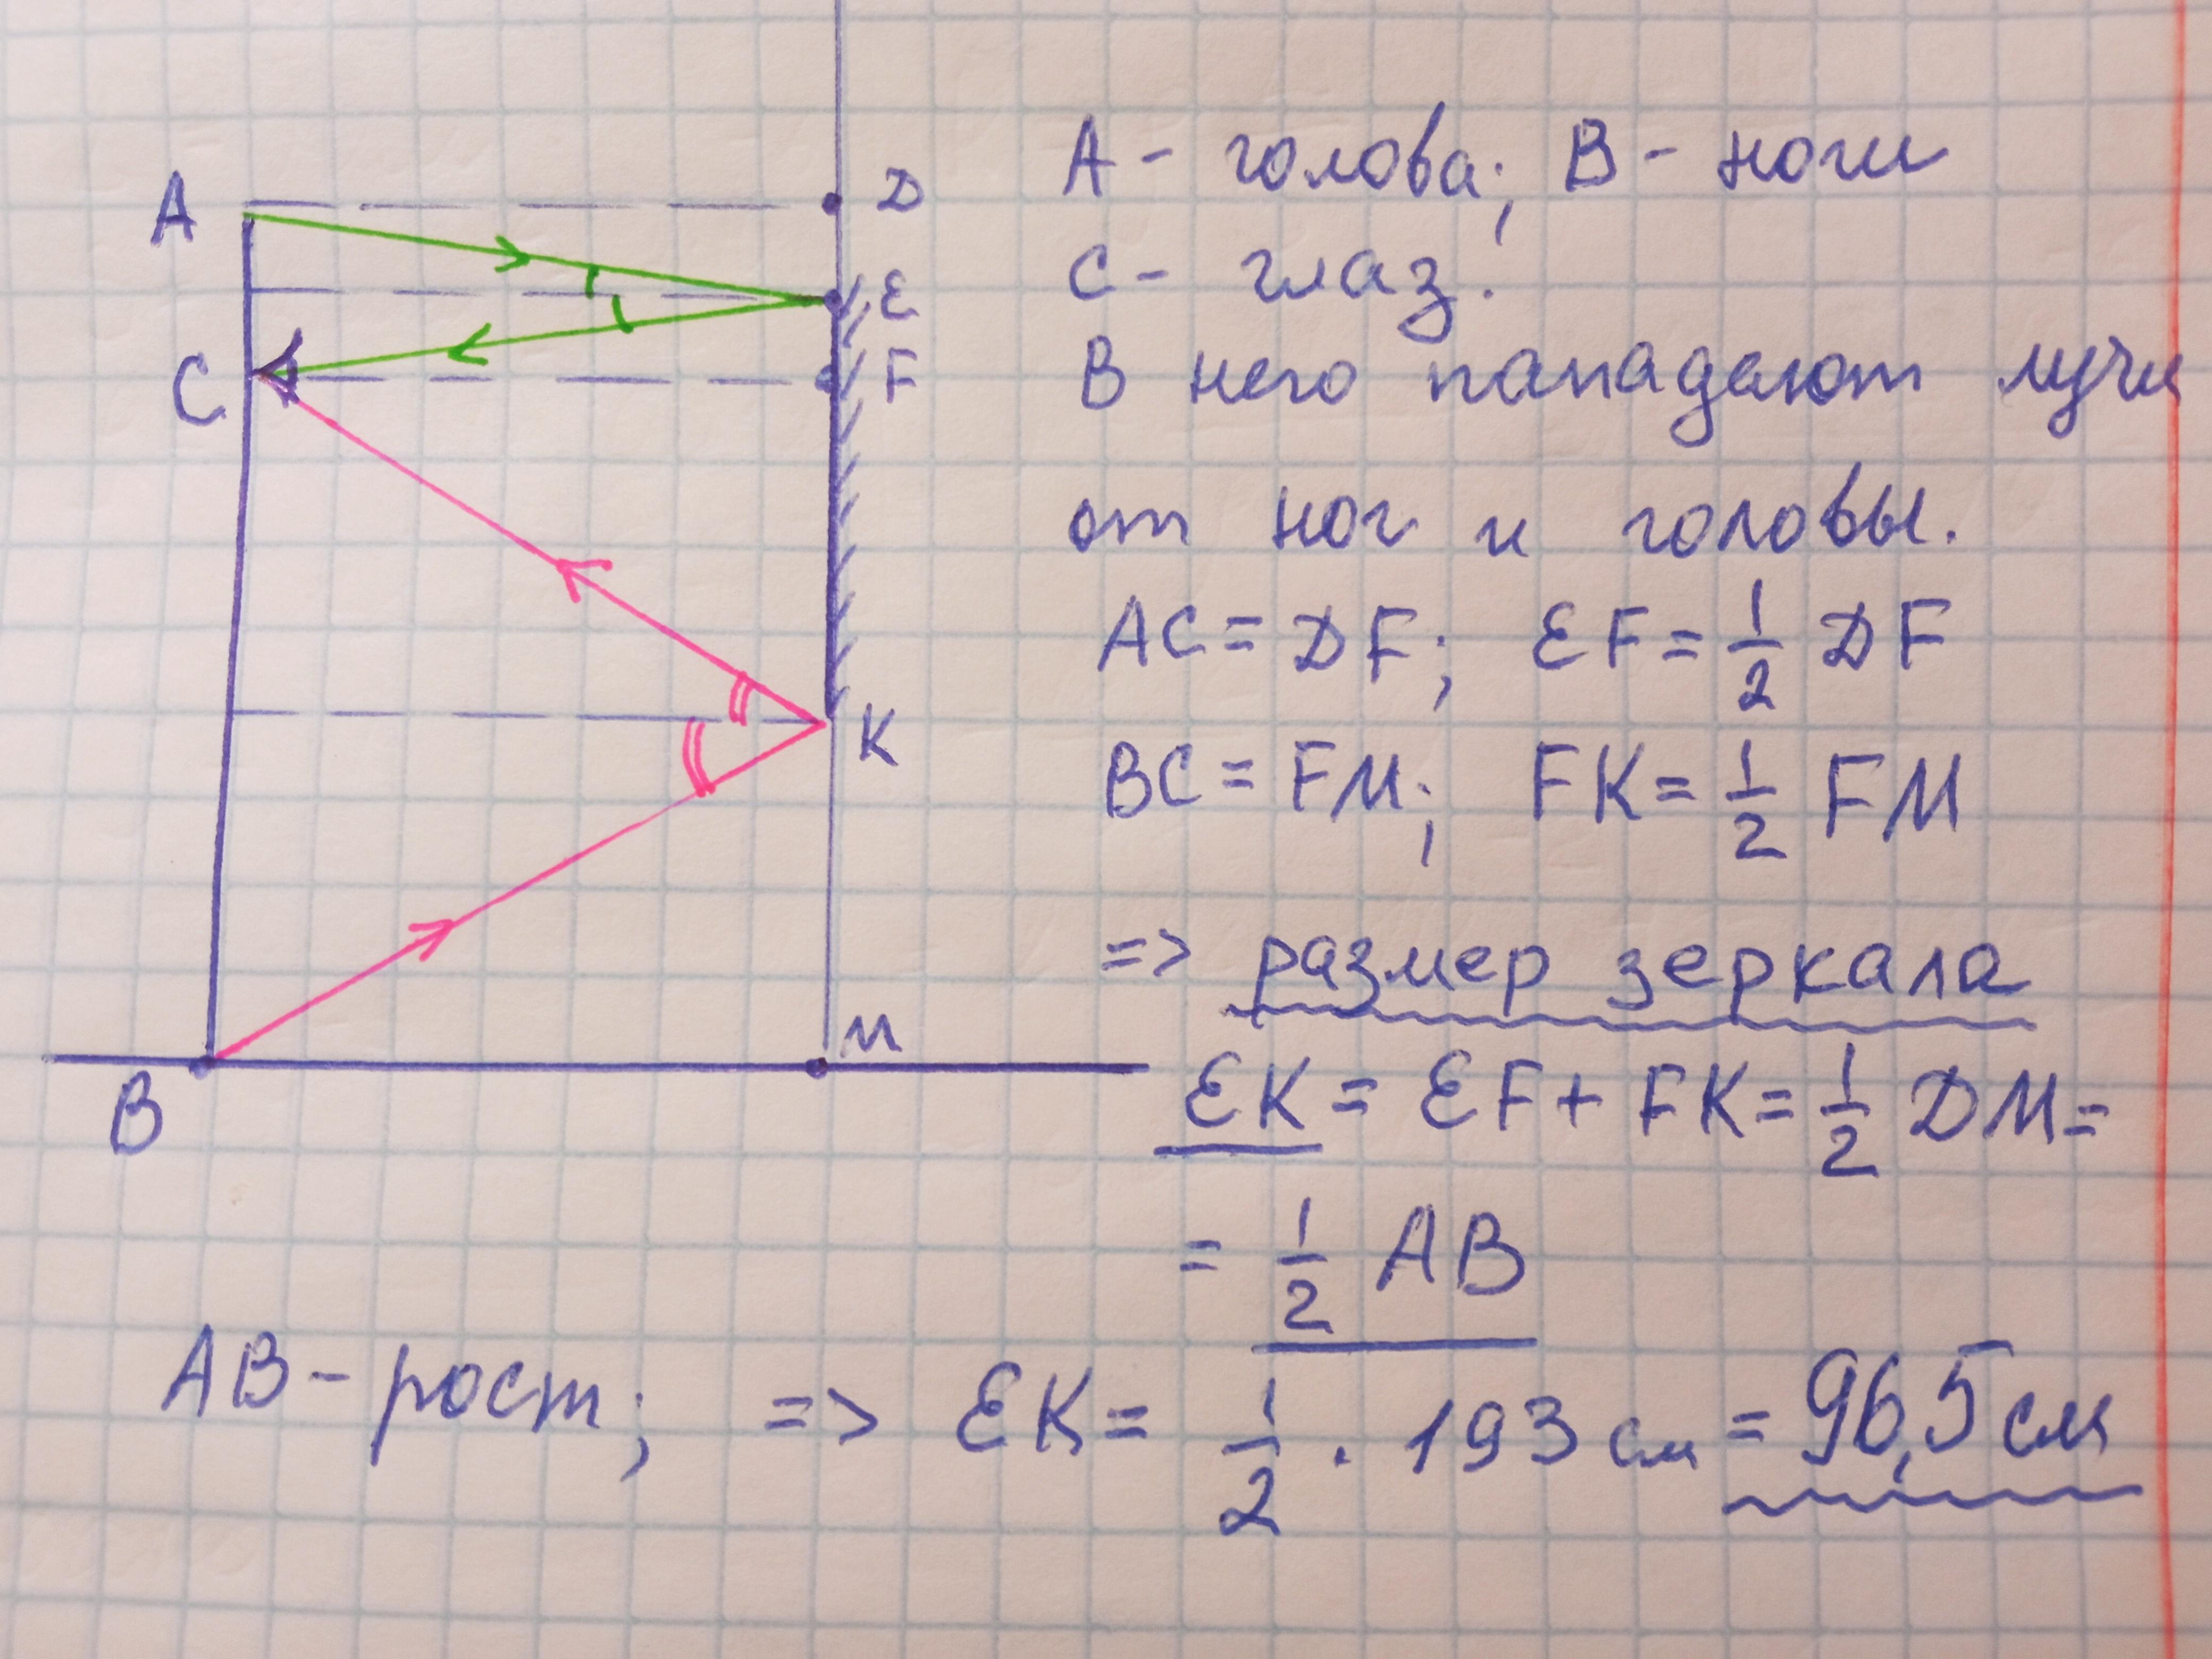 A
C
B
D
E
F
K
M
A - голова; B - ноги
C - глаз!
В него пападают лучи
от ног и головы.
AC = DF; EF = 1/2 DF
BC = FM; FK = 1/2 FM
=> размер зеркала
EK = EF + FK = 1/2 DM =
= 1/2 AB
AB - рост; => EK = 1/2 · 193 см = 96,5 см